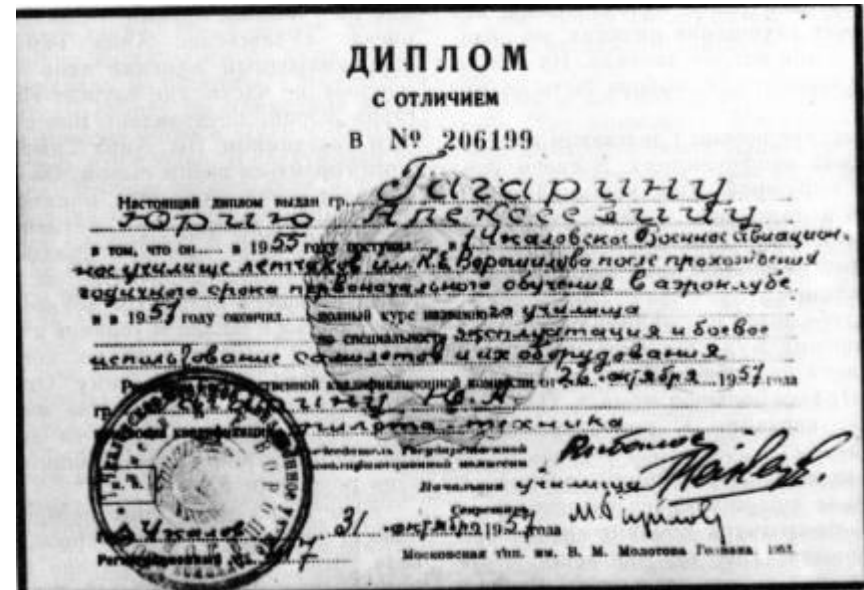 ДИПЛОМ
С ОТЛИЧИЕМ
В № 206199
Настоящий диплом выдан гр. Гагарину
Юрию Алексеевичу
в том, что он в 1955 году поступил в 1 Чкаловское Военное Авиацион-
ное училище летчиков им. К.Е. Ворошилова после прохождения
годичного срока первоначального обучения в аэроклубе
и в 1957 году окончил полный курс названного училища
по специальности эксплуатация и боевое
использование самолетов и их оборудования
квалификационной комиссии от 26 октября 1957 года
гр. Ю.А.
пилота-техника
Председатель Государственной
квалификационной комиссии
Начальник училища
Секретарь
г. Чкалов 31 октября 1957 года
Московская тип. им. В. М. Молотова Гознака.